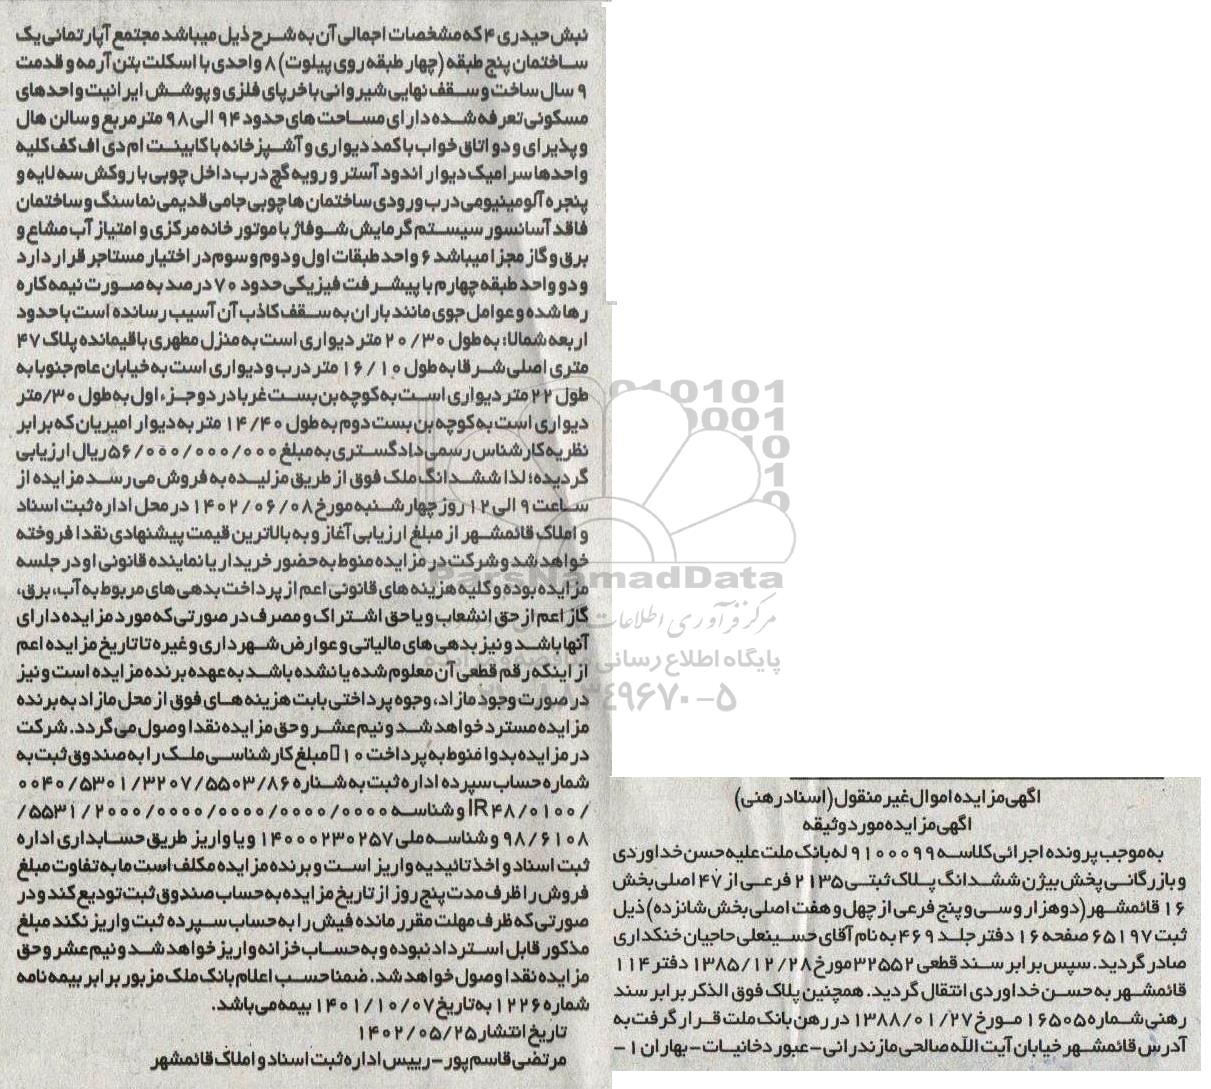 اگهی مزایده اموال غیر منقول (اسناد رهنی)
اگهی مزایده مورد وثیقه
به موجب پرونده اجرائی کلاسه ۹۱۰۰۰۹۹ له بانک ملت علیه حسن خداوردی
و بازرگانی پخش بیژن ششدانگ پلاک ثبتی ۲۱۳۵ فرعی از ۴۷ اصلی بخش
۱۶ قائمشهر (دوهزار و سی و پنج فرعی از چهل و هفت اصلی بخش شانزده) ذیل
ثبت ۶۵۱۹۷ صفحه ۱۶ دفتر جلد ۴۶۹ به نام آقای حسینعلی حاجیان خنکداری
صادر گردید. سپس برابر سند قطعی ۳۲۵۵۲ مورخ ۱۳۸۵/۱۲/۲۸ دفتر ۱۱۴
قائمشهر به حسن خداوردی انتقال گردید. همچنین پلاک فوق الذکر برابر سند
رهنی شماره ۱۶۵۰۵ مورخ ۱۳۸۸/۰۱/۲۷ در رهن بانک ملت قرار گرفت به
آدرس قائمشهر خیابان آیت الله صالحی مازندرانی-عبور دخانیات-بهاران ۱-
نبش حیدری ۴ که مشخصات اجمالی آن به شرح ذیل میباشد مجتمع آپارتمانی یک
ساختمان پنج طبقه (چهار طبقه روی پیلوت) ۸ واحدی با اسکلت بتن آرمه و قدمت
۹ سال ساخت و سقف نهایی شیروانی با خرپای فلزی و پوشش ایرانیت واحدهای
مسکونی تعرفه شده دارای مساحت های حدود ۹۴ الی ۹۸ متر مربع و سالن هال
و پذیرای و دو اتاق خواب با کمد دیواری و آشپزخانه با کابینت ام دی اف کف کلیه
واحدها سرامیک دیوار اندود آستر و رویه گچ درب داخل چوبی با روکش سه لایه و
پنجره آلومینیومی درب ورودی ساختمان ها چوبی جامی قدیمی نما سنگ و ساختمان
فاقد آسانسور سیستم گرمایش شوفاژ با موتور خانه مرکزی و امتیاز آب مشاع و
برق و گاز مجزا میباشد ۶ واحد طبقات اول و دوم و سوم در اختیار مستاجر قرار دارد
و دو واحد طبقه چهارم با پیشرفت فیزیکی حدود ۷۰ درصد به صورت نیمه کاره
رها شده و عوامل جوی مانند باران به سقف کاذب آن آسیب رسانده است با حدود
اربعه شمالا: به طول ۲۰/۳۰ متر دیواری است به منزل مطهری باقیمانده پلاک ۴۷
متری اصلی شرقا به طول ۱۶/۱۰ متر درب و دیواری است به خیابان عام جنوبا به
طول ۲۲ متر دیواری است به کوچه بن بست غربا در دو جزء اول به طول ۳۰/متر
دیواری است به کوچه بن بست دوم به طول ۱۴/۴۰ متر به دیوار امیریان که برابر
نظریه کارشناس رسمی دادگستری به مبلغ ۵۶/۰۰۰/۰۰۰/۰۰۰ریال ارزیابی
گردیده؛ لذا ششدانگ ملک فوق از طریق مزلیده به فروش می رسد مزایده از
ساعت ۹ الی ۱۲ روز چهارشنبه مورخ ۱۴۰۲/۰۶/۰۸ در محل اداره ثبت اسناد
و املاک قائمشهر از مبلغ ارزیابی آغاز و به بالاترین قیمت پیشنهادی نقدا فروخته
خواهد شد و شرکت در مزایده منوط به حضور خریدار یا نماینده قانونی او در جلسه
مزایده بوده و کلیه هزینه های قانونی اعم از پرداخت بدهی های مربوط به آب، برق،
گاز اعم از حق انشعاب و یا حق اشتراک و مصرف در صورتی که مورد مزایده دارای
آنها باشد و نیز بدهی های مالیاتی و عوارض شهرداری و غیره تا تاریخ مزایده اعم
از اینکه رقم قطعی آن معلوم شده یا نشده باشد به عهده برنده مزایده است و نیز
در صورت وجود مازاد، وجوه پرداختی بابت هزینه های فوق از محل مازاد به برنده
مزایده مسترد خواهد شد و نیم عشر و حق مزایده نقدا وصول می گردد. شرکت
در مزایده بدوا منوط به پرداخت ۱۰ مبلغ کارشناسی ملک را به صندوق ثبت به
شماره حساب سپرده اداره ثبت به شناره ۰۰۴۰/۵۳۰۱/۳۲۰۷/۵۵۰۳/۸۶
/IR۴۸/۰۱۰۰ و شناسه ۰۰۰۰/۰۰۰۰/۰۰۰۰/۰۰۰۰/۲۰۰۰/۵۵۳۱/
۹۸/۶۱۰۸ و شناسه ملی ۱۴۰۰۰۲۳۰۲۵۷ و یا واریز طریق حسابداری اداره
ثبت اسناد و اخذ تائیدیه واریز است و برنده مزایده مکلف است ما به تفاوت مبلغ
فروش را ظرف مدت پنج روز از تاریخ مزایده به حساب صندوق ثبت تودیع کند و در
صورتی که ظرف مهلت مقرر مانده فیش را به حساب سپرده ثبت واریز نکند مبلغ
مذکور قابل استرداد نبوده و به حساب خزانه واریز خواهد شد و نیم عشر و حق
مزایده نقدا وصول خواهد شد. ضمنا حسب اعلام بانک ملک مزبور برابر بیمه نامه
شماره ۱۲۲۶ به تاریخ ۱۴۰۱/۱۰/۰۷ بیمه می باشد.
تاریخ انتشار ۱۴۰۲/۰۵/۲۵
مرتضی قاسم پور-رییس اداره ثبت اسناد و املاک قائمشهر
ParsNamadData
پایگاه اطلاع رسانی مناقصه و مزایده